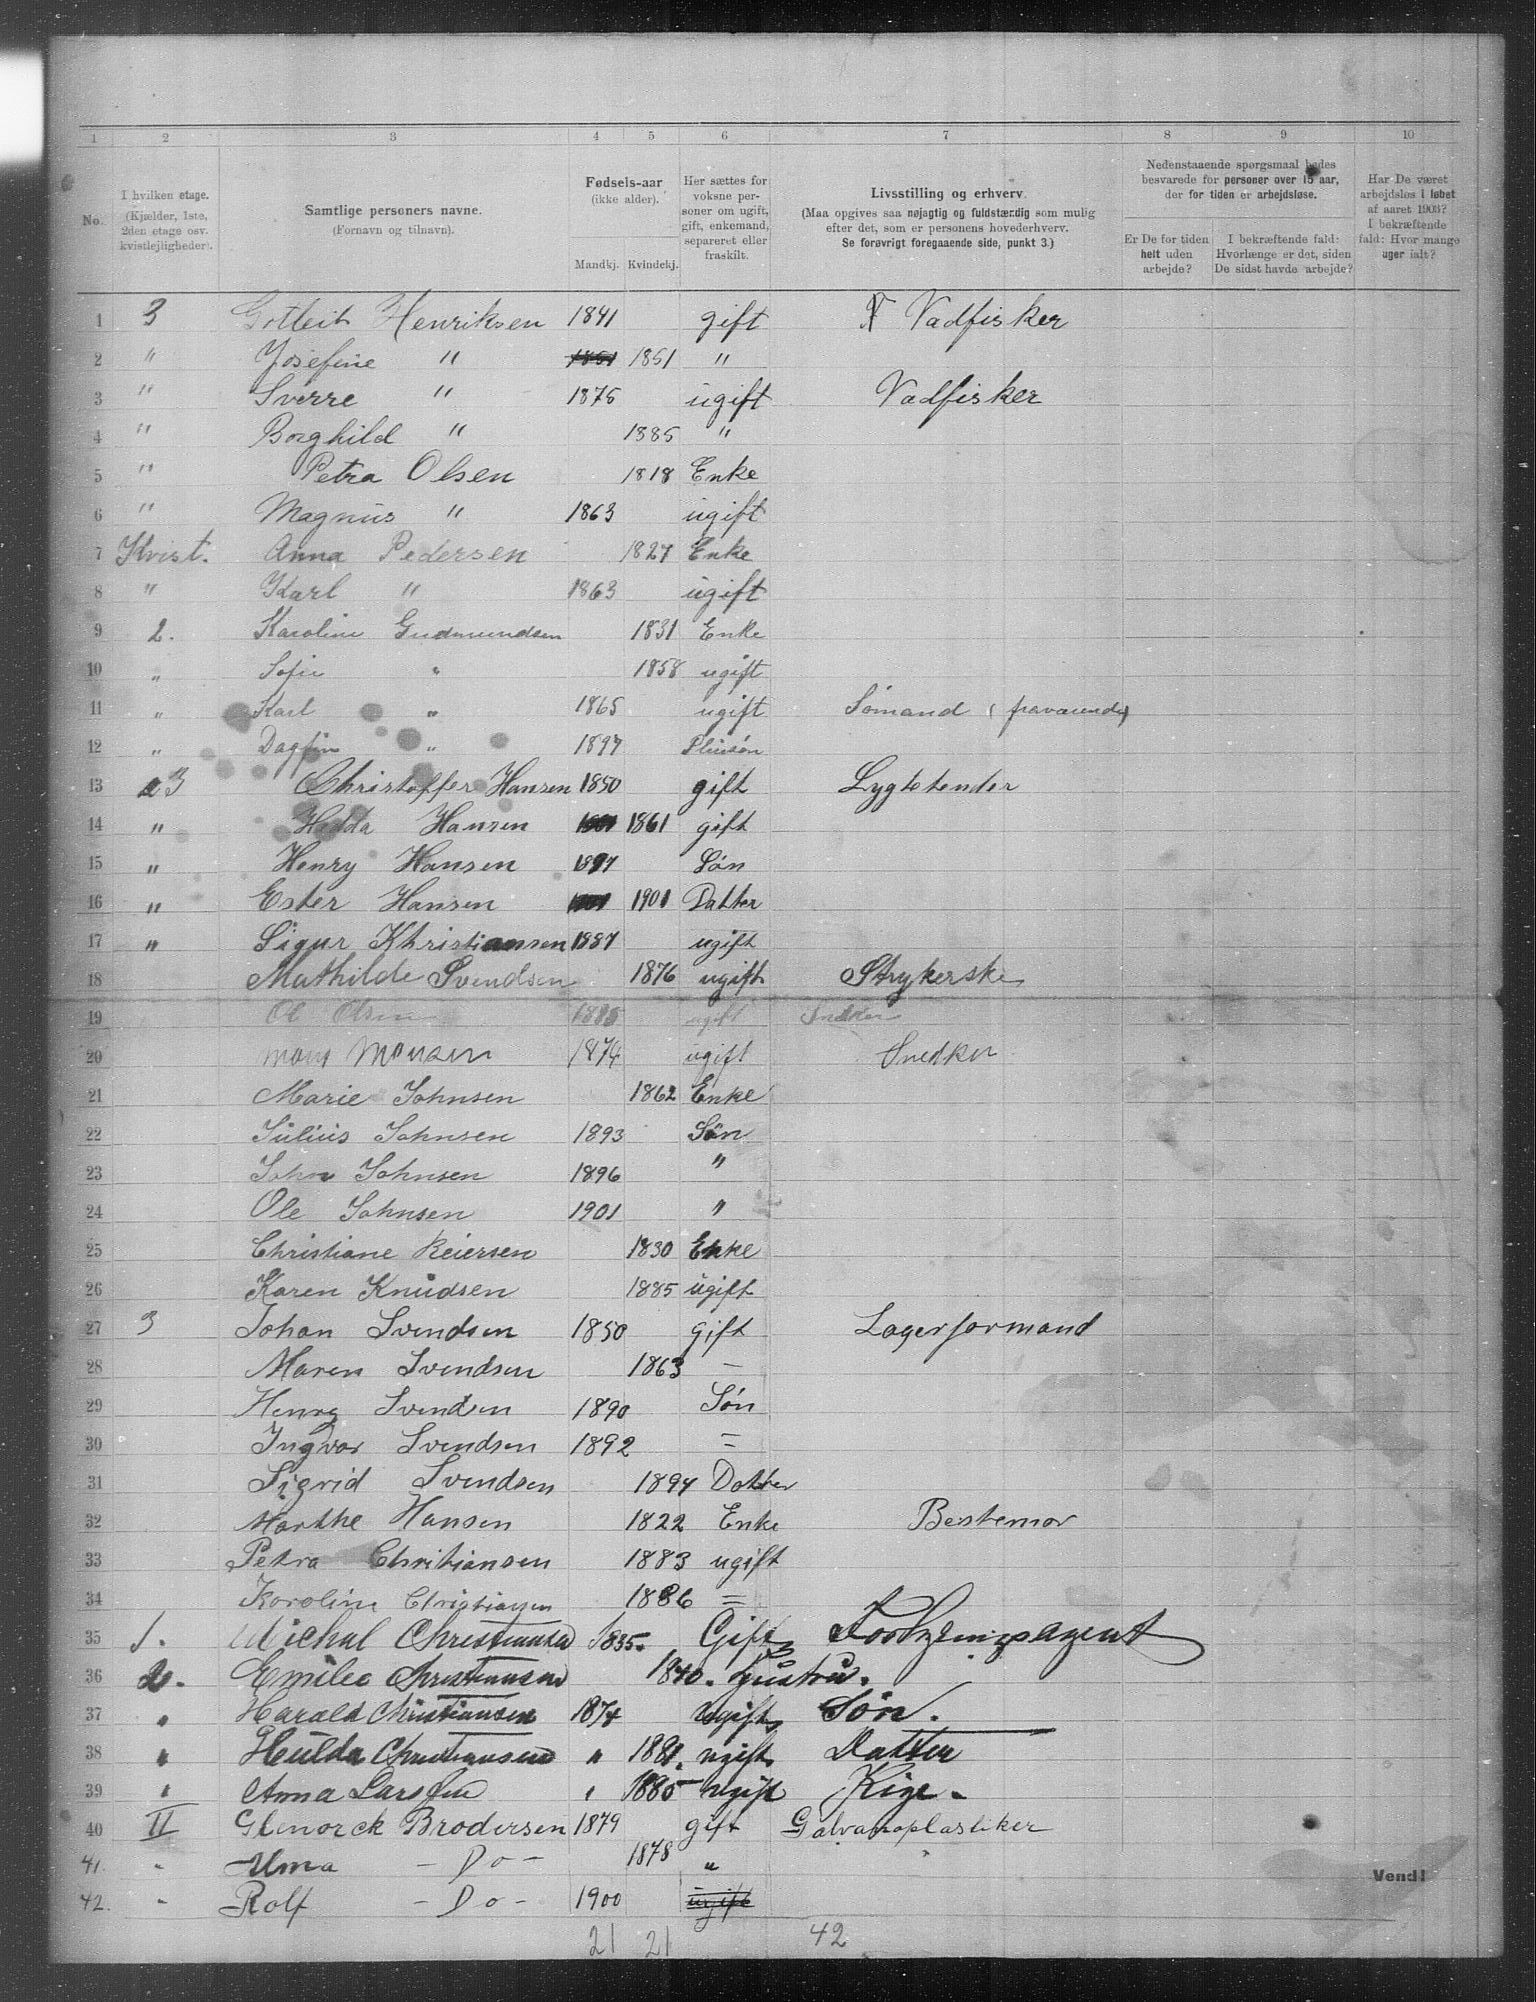 1 2 3 4 5 6 7 8 9 10
No.
I hvilken etage. (Kjælder, 1ste, 2den etage osv. kvistlejligheder).
Samtlige personers navne. (Fornavn og tilnavn).
Fødsels-aar (ikke alder). Mandkj. Kvindekj.
Her sættes for voksne personer om ugift, gift, enkemand, separeret eller fraskilt.
Livsstilling og erhverv. (Maa opgives saa nøjagtig og fuldstændig som mulig efter det, som er personens hovederhverv. Se forøvrigt foregaaende side, punkt 3.)
Nedenstaaende spørgsmaal bedes besvarede for personer over 15 aar, der for tiden er arbejdsløse.
Er De for tiden helt uden arbejde?
I bekræftende fald: Hvorlænge er det, siden De sidst havde arbejde?
Har De været arbejdsløs i løbet af aaret 1903? I bekræftende fald: Hvor mange uger ialt?
1 3 Gotleib Henriksen 1841 gift Vadfisker
2 " Josefine " 1851 "
3 " Sverre " 1875 ugift Vadfisker
4 " Borghild " 1885 "
5 " Petra Olsen 1818 Enke
6 " Magnus " 1863 ugift
7 Kvist. Anna Pedersen 1827 Enke
8 " Karl " 1863 ugift
9 2. Karoline Gudmundsen 1831 Enke
10 " Sofie " 1858 ugift
11 " Karl " 1865 ugift Sømand (fraværende)
12 " Dagfin " 1897 Pleiesøn
13 3 Christoffer Hansen 1850 gift Lygtetender
14 " Hedda Hansen 1861 gift
15 " Henry Hansen 1897 Søn
16 " Ester Hansen 1901 Datter
17 " Sigur Khristiansen 1887 ugift
18 Mathilde Svendsen 1876 ugift Strykerske
19 Ol Olsen 1885 ugift Snedker
20 Mons Monsen 1874 ugift Snedker
21 Marie Johnsen 1862 Enke
22 Julius Johnsen 1893 Søn
23 John Johnsen 1896 "
24 Ole Johnsen 1901 "
25 Christiane Reiersen 1830 Enke
26 Karen Knudsen 1885 ugift
27 3 Johan Svendsen 1850 gift Lagerformand
28 Maren Svendsen 1863 –
29 Henry Svendsen 1890 Søn
30 Ingvar Svendsen 1892 =
31 Sigrid Svendsen 1894 Datter
32 Marthe Hansen 1822 Enke Bestemor
33 Petra Christiansen 1883 ugift
34 Karoline Christiansen 1886 =
35 1. Michal Christiansen 1835. Gift Forhyringsagent
36 2. Emilie Christiansen 1840. Hustru.
37 " Harald Christiansen 1874 ugift Søn.
38 " Hulda Christiansen " 1881. ugift Datter
39 " Anna Larssen " 1885 ugift Pige.
40 II Glenorck Brodersen 1879 gift Galvanoplastiker
41. " Alma – Do – 1878 "
42. " Rolf – Do – 1900 ugift
Vend!
21 21 42